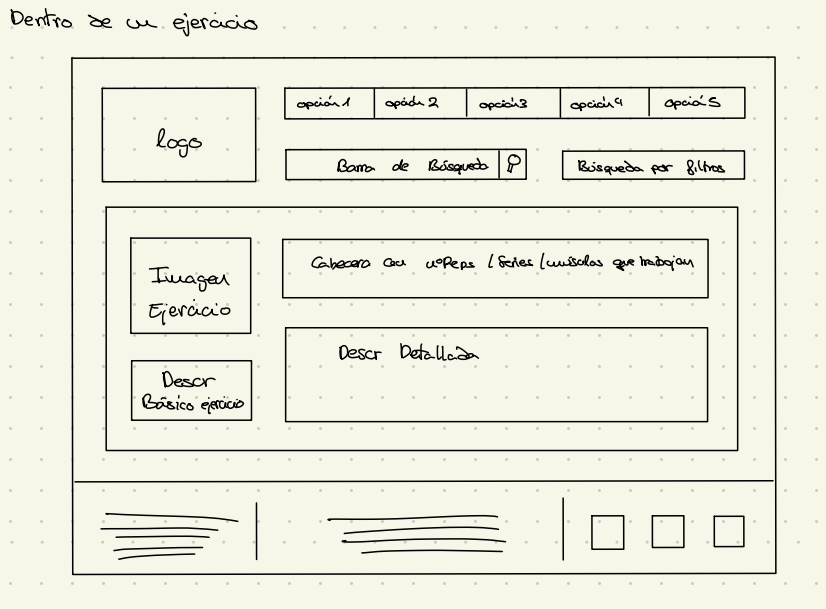 Dentro de un ejercicio
logo
opción 1 opción 2 opción3 opción4 opción5
Barra de Búsqueda
Búsqueda por filtros
Imagen
Ejercicio
Cabecera con nºReps / Series / músculos que trabajan
Descr
Básico ejercicio
Descr Detallada